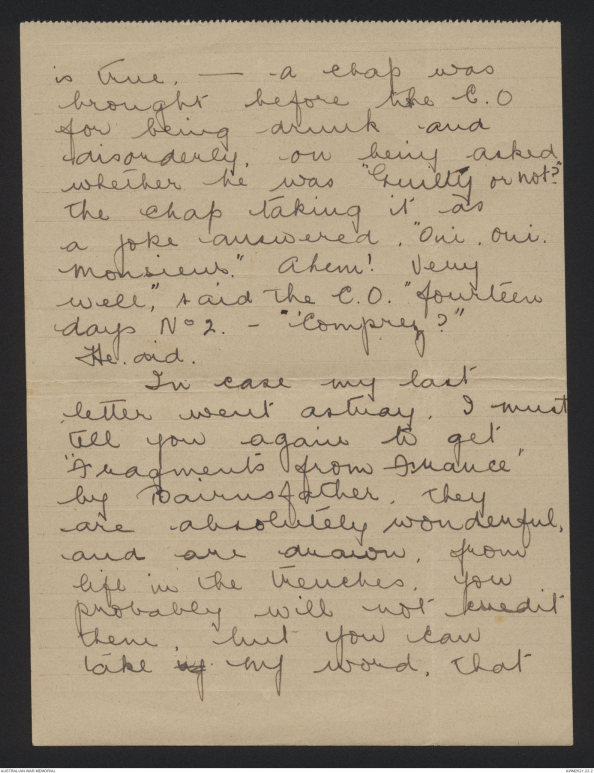 is true. — a chap was
brought before the C.O
for being drunk and
disorderly, on being asked
whether he was "Guilty or not?"
the chap taking it as
a joke answered, "Oui, oui.
Monsieur." Ahem! Very
well," said the C.O. "fourteen
days No 2. - "Comprez?"
He did.
In case my last
letter went astray, I must
tell you again to get
"Fragments from France"
by Bairnsfather. They
are absolutely wonderful,
and are drawn, from
life in the trenches. You
probably will not credit
them, but you can
take my word, that
AUSTRALIAN WAR MEMORIAL